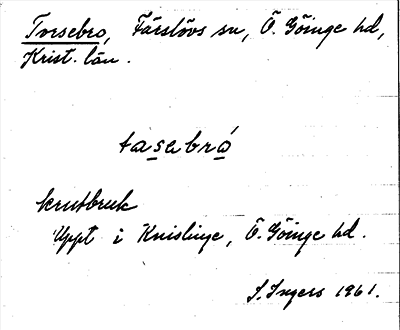 Torsebro, Färslövs sn, Ö. Göinge hd,
Krist. län.
tasebró
krutbruk
Uppt i Knislinge, Ö. Göinge hd.
I. Ingers 1961.